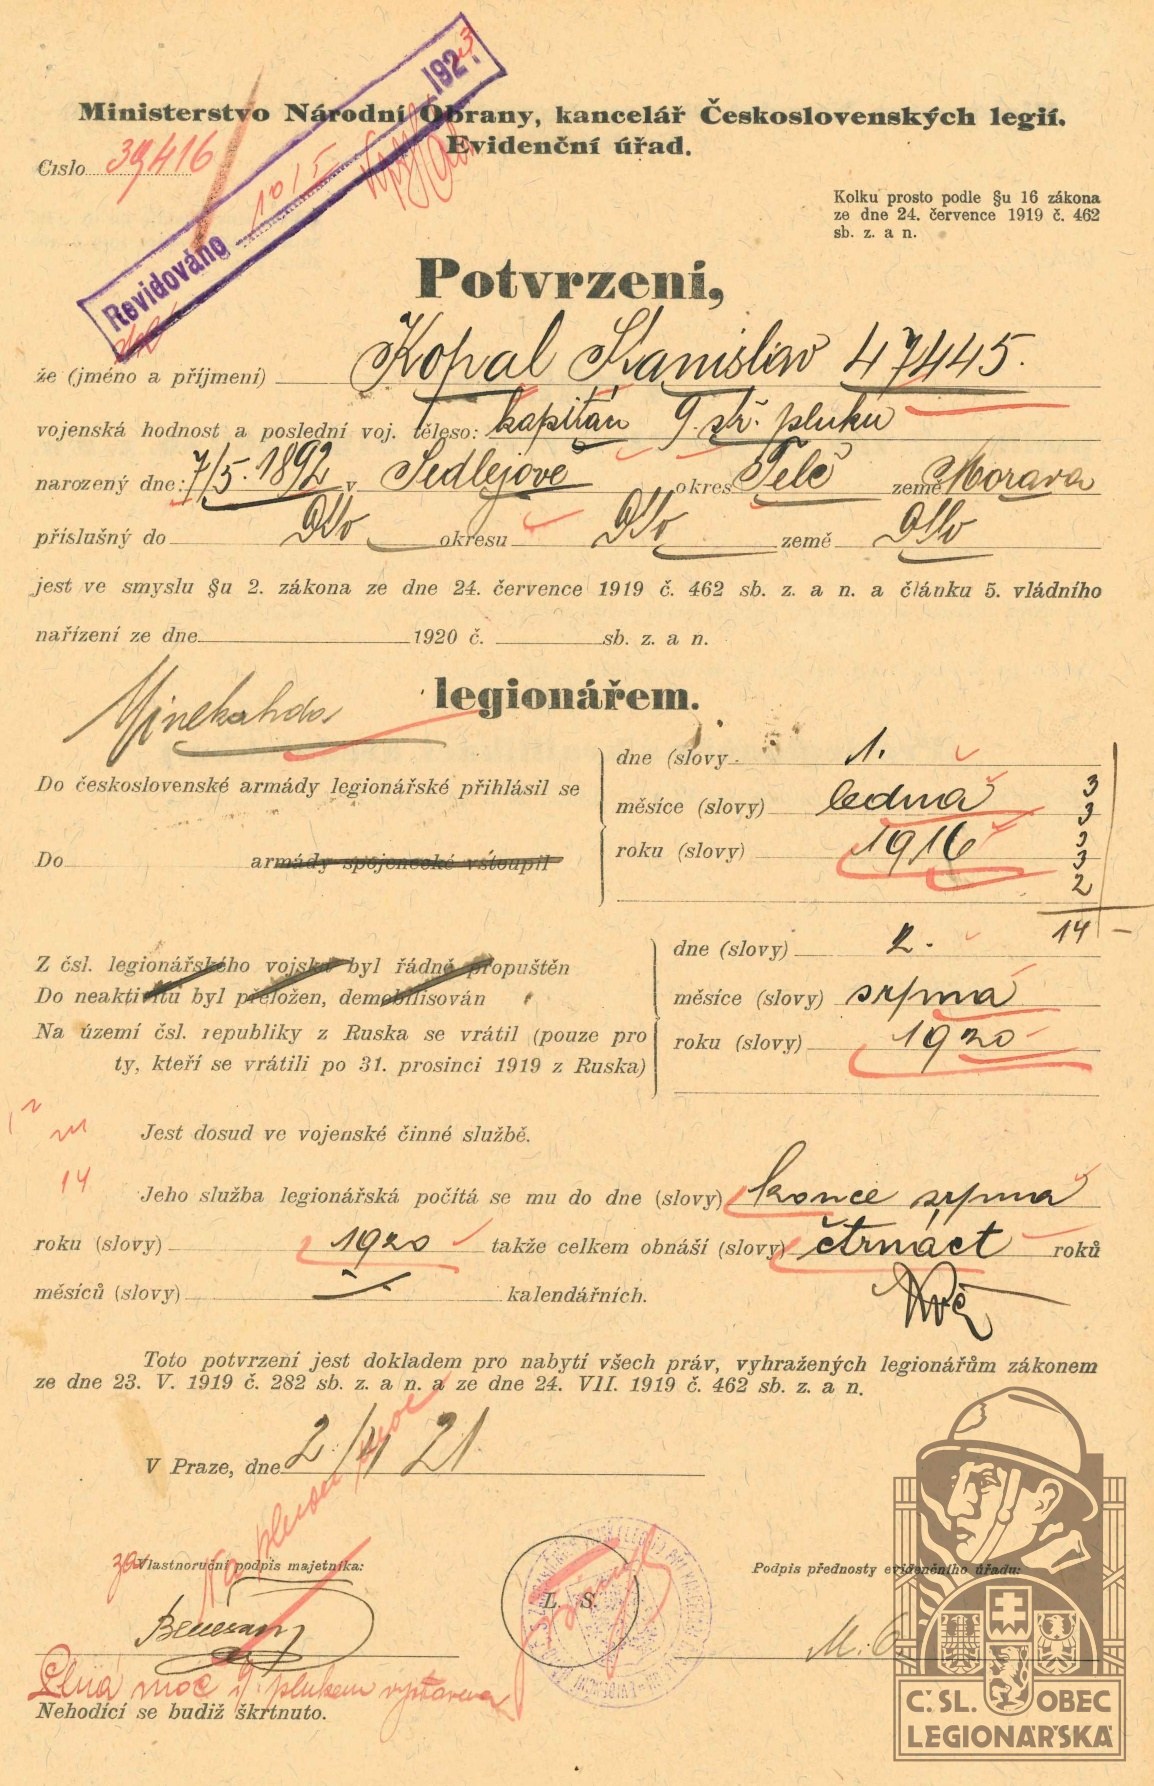 Ministerstvo Národní Obrany, kancelář Československých legií.
Evidenční úřad.
Číslo 39416
Revidováno 10/5 1923.
Kolku prosto podle §u 16 zákona
ze dne 24. července 1919 č. 462
sb. z. a n.
Potvrzení,
že (jméno a příjmení) Kopal Stanislav 47445.
vojenská hodnost a poslední voj. těleso: kapitán 9. stř. pluku
narozený dne: 7/5. 1892 v Sedlejově okres Telč země Morava
příslušný do Dtto okresu Dtto země Dtto
jest ve smyslu §u 2. zákona ze dne 24. července 1919 č. 462 sb. z. a n. a článku 5. vládního
nařízení ze dne 1920 č. sb. z. a n.
legionářem.
Do československé armády legionářské přihlásil se
Do armády spojenecké vstoupil
dne (slovy 1.
měsíce (slovy) ledna
roku (slovy) 1916
3
3
3
3
2
14 –
Z čsl. legionářského vojska byl řádně propuštěn
Do neaktivitu byl přeložen, demobilisován
Na území čsl. republiky z Ruska se vrátil (pouze pro
ty, kteří se vrátili po 31. prosinci 1919 z Ruska)
dne (slovy) 2.
měsíce (slovy) srpna
roku (slovy) 1920
Jest dosud ve vojenské činné službě.
14
Jeho služba legionářská počítá se mu do dne (slovy) konce srpna
roku (slovy) 1920 takže celkem obnáší (slovy) čtrnáct roků
měsíců (slovy) kalendářních.
Toto potvrzení jest dokladem pro nabytí všech práv, vyhražených legionářům zákonem
ze dne 23. V. 1919 č. 282 sb. z. a n. a ze dne 24. VII. 1919 č. 462 sb. z. a n.
V Praze, dne 2/4 21.
Na plnou moc
za Vlastnoruční podpis majetníka:
L. S.
Podpis přednosty evidenčního úřadu:
Plná moc 9. plukem vystavena
Nehodící se budiž škrtnuto.
Č.SL. OBEC
LEGIONÁŘSKÁ